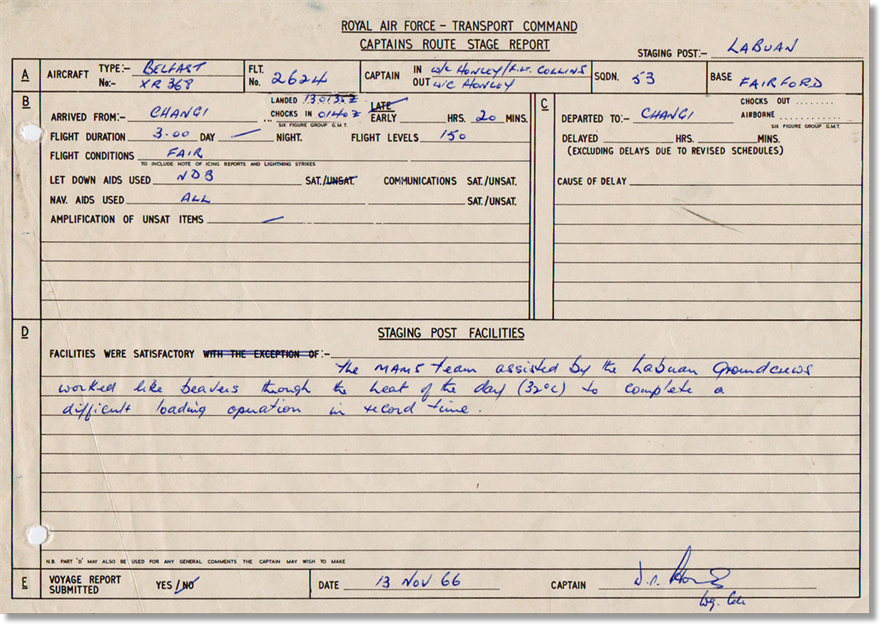 ROYAL AIR FORCE - TRANSPORT COMMAND
CAPTAINS ROUTE STAGE REPORT
STAGING POST:- LABUAN
A AIRCRAFT TYPE:- BELFAST No:- XR 368 FLT. No. 2624 CAPTAIN IN W/C HONLEY/F.LT. COLLINS OUT W/C HONLEY SQDN. 53 BASE FAIRFORD
B
LANDED 130135Z
ARRIVED FROM:- CHANGI CHOCKS IN 0140Z LATE EARLY HRS. 20 MINS.
SIX FIGURE GROUP G.M.T.
FLIGHT DURATION 3.00 DAY — NIGHT. FLIGHT LEVELS 150
FLIGHT CONDITIONS FAIR
TO INCLUDE NOTE OF ICING REPORTS AND LIGHTNING STRIKES
LET DOWN AIDS USED NDB SAT./UNSAT. COMMUNICATIONS SAT./UNSAT.
NAV. AIDS USED ALL SAT./UNSAT.
AMPLIFICATION OF UNSAT ITEMS —
C
CHOCKS OUT ........
DEPARTED TO:- CHANGI AIRBORNE ............
SIX FIGURE GROUP G.M.T.
DELAYED HRS. MINS.
(EXCLUDING DELAYS DUE TO REVISED SCHEDULES)
CAUSE OF DELAY
D STAGING POST FACILITIES
FACILITIES WERE SATISFACTORY WITH THE EXCEPTION OF:-
The MAMS team assisted by the Labuan Groundcrews
worked like beavers through the heat of the day (32°C) to complete a
difficult loading operation in record time.
N.B. PART 'D' MAY ALSO BE USED FOR ANY GENERAL COMMENTS THE CAPTAIN MAY WISH TO MAKE
E VOYAGE REPORT SUBMITTED YES/NO DATE 13 NOV 66 CAPTAIN
Wg. Cdr